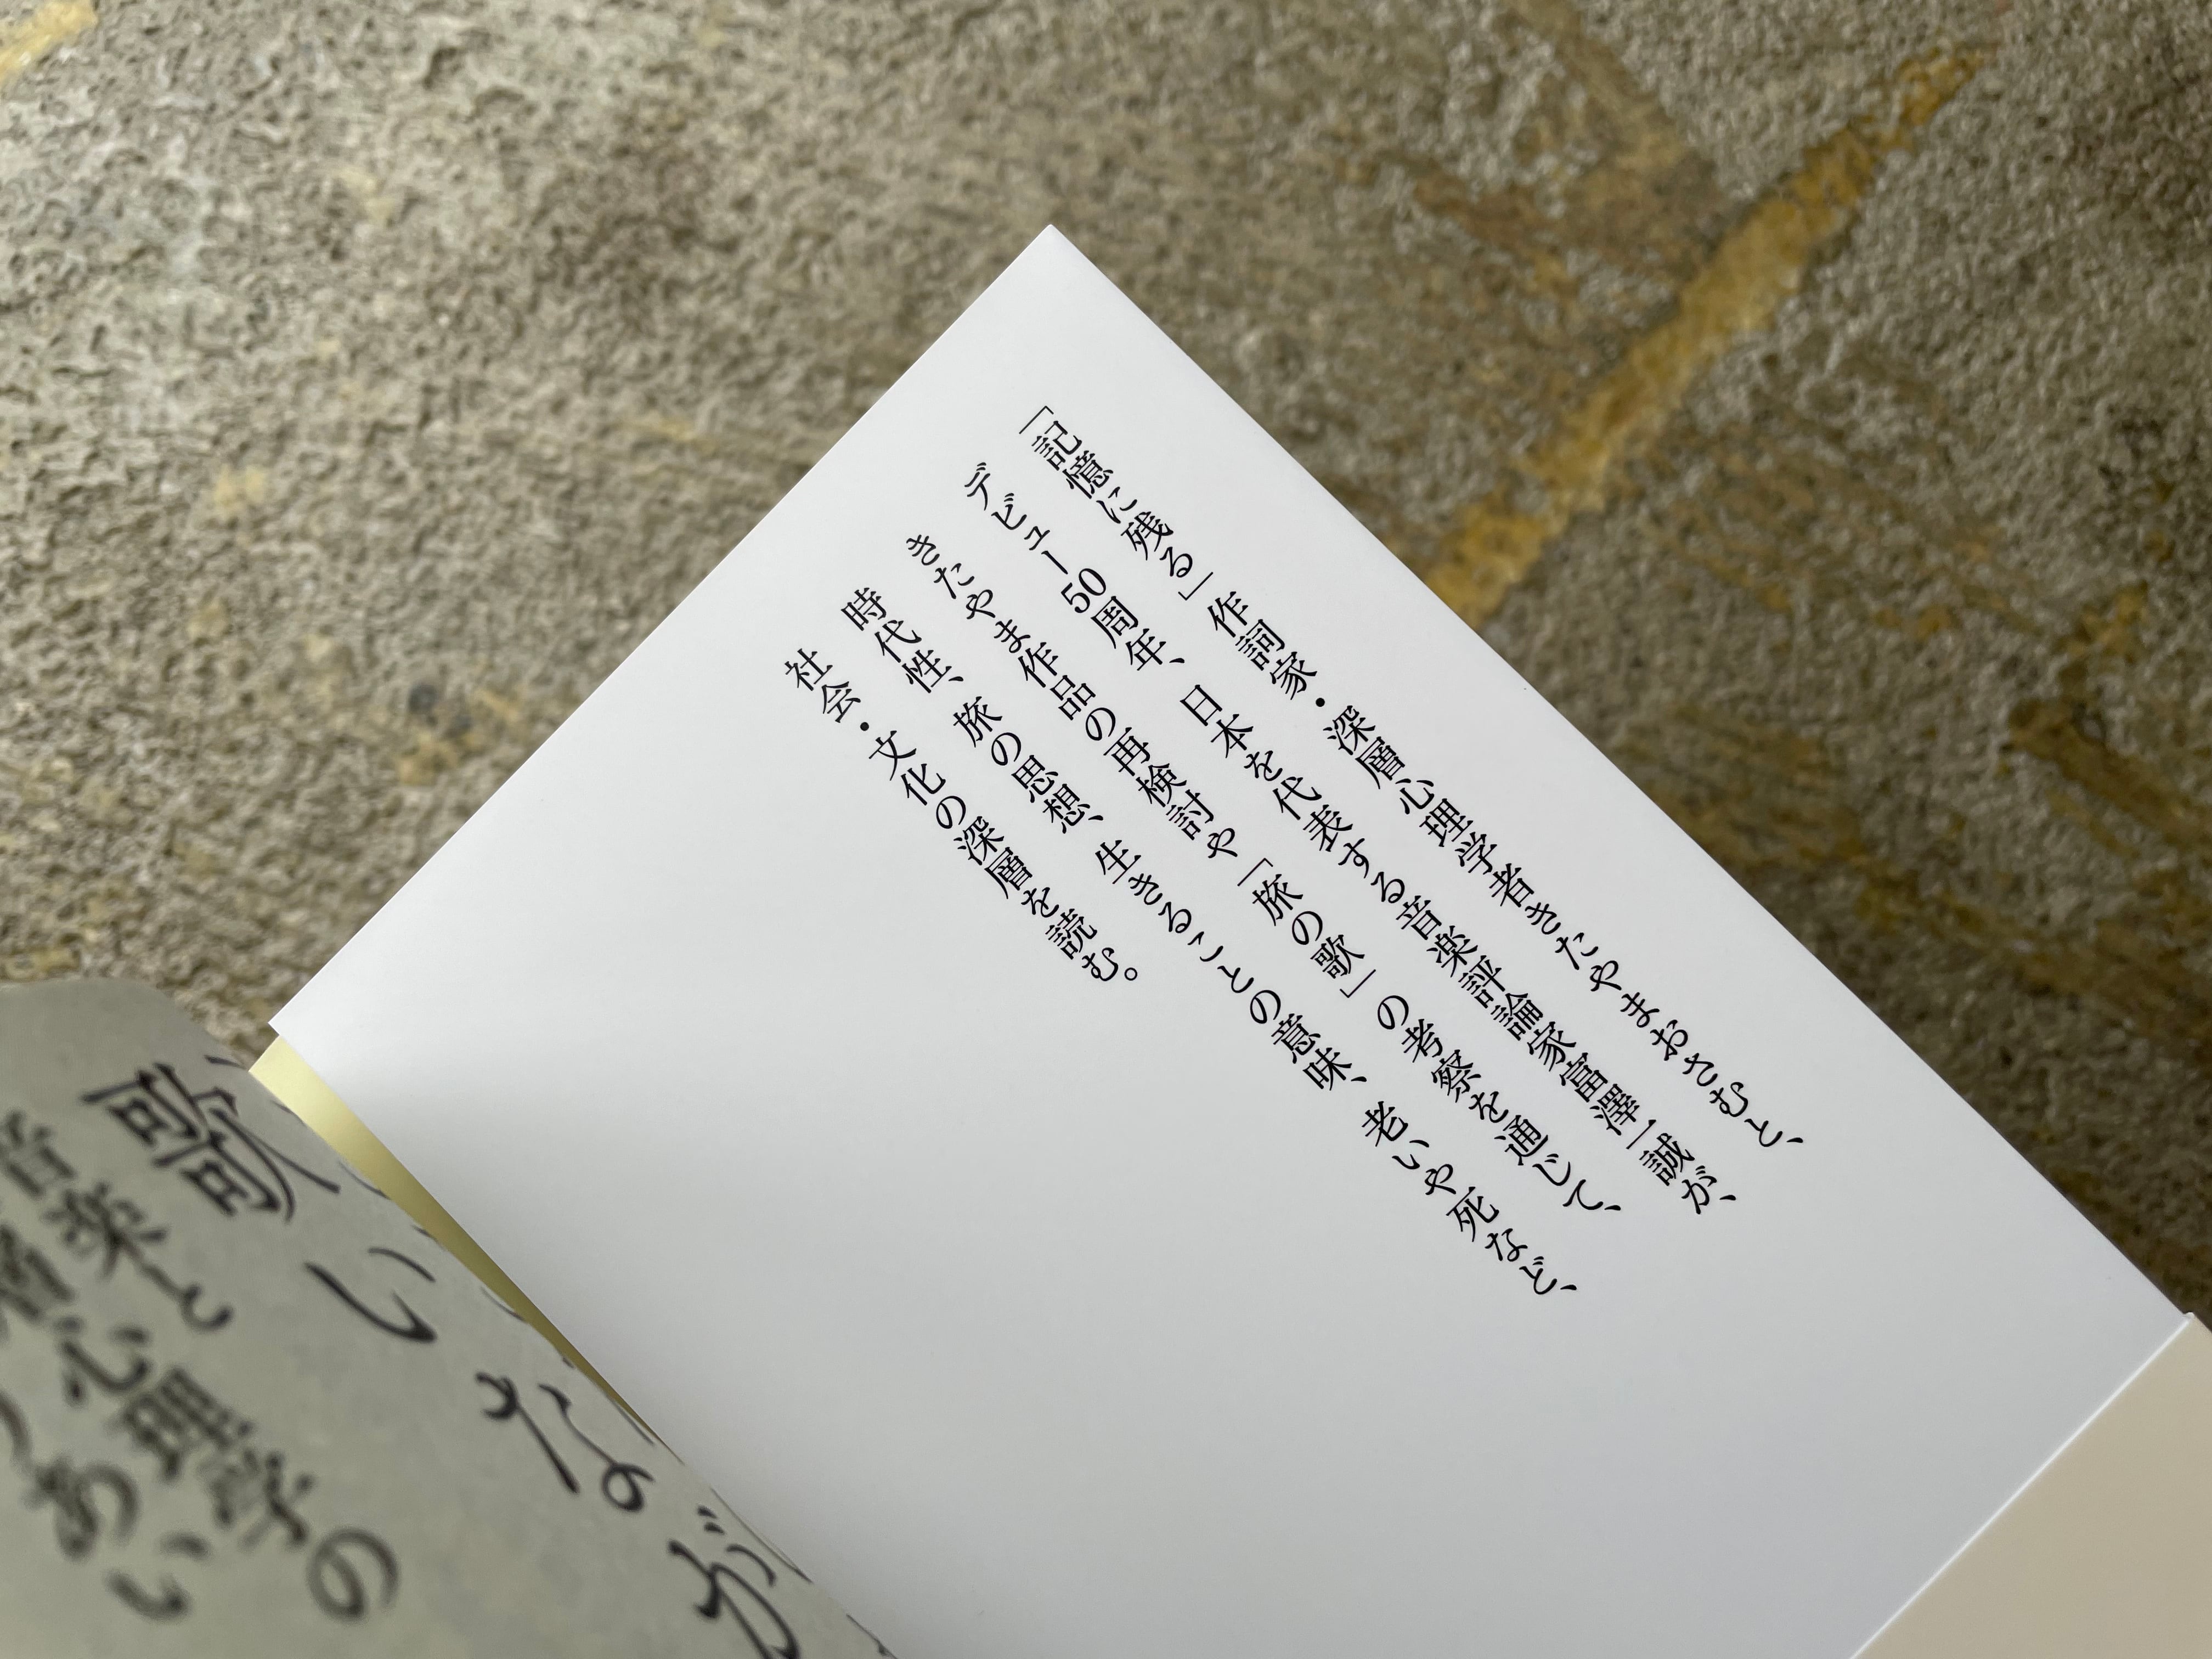 「記憶に残る」作詞家・深層心理学者きたやまおさむと、
デビュー50周年、日本を代表する音楽評論家富澤一誠が、
きたやま作品の再検討や「旅の歌」の考察を通じて、
時代性、旅の思想、生きることの意味、老いや死など、
社会・文化の深層を読む。
歌いなが
音楽と
心理学の
あい